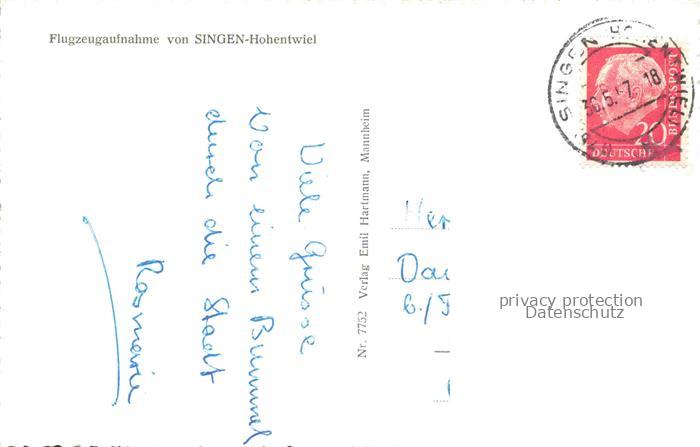 Flugzeugaufnahme von SINGEN-Hohentwiel
Viele Grüsse
von einem Bummel
durch die Stadt
Rosmarie
Nr. 7752 Verlag Emil Hartmann, Mannheim
SINGEN HOHENTWIEL
18
20
DEUTSCHE
BUNDESPOST
privacy protection
Datenschutz